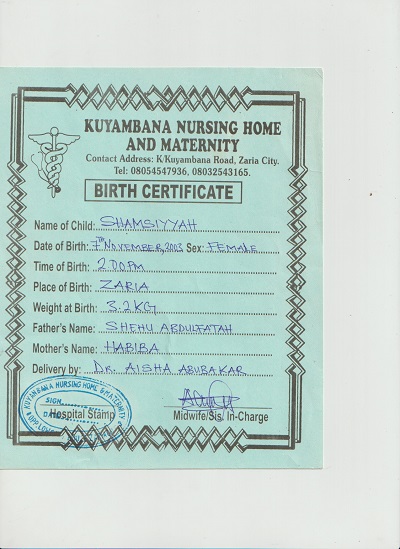 KUYAMBANA NURSING HOME
AND MATERNITY
Contact Address: K/Kuyambana Road, Zaria City.
Tel: 08054547936, 08032543165.
BIRTH CERTIFICATE
Name of Child: SHAMSIYYAH
Date of Birth: 7TH NOVEMBER, 2003 Sex: FEMALE
Time of Birth: 2:00PM
Place of Birth: ZARIA
Weight at Birth: 3.2KG
Father's Name: SHEHU ABDULFATAH
Mother's Name: HABIBA
Delivery by: DR. AISHA ABUBAKAR
KUYAMBANA NURSING HOME & MATERNITY
SIGN
DATE
Hospital Stamp
Midwife/Sis/ In-Charge